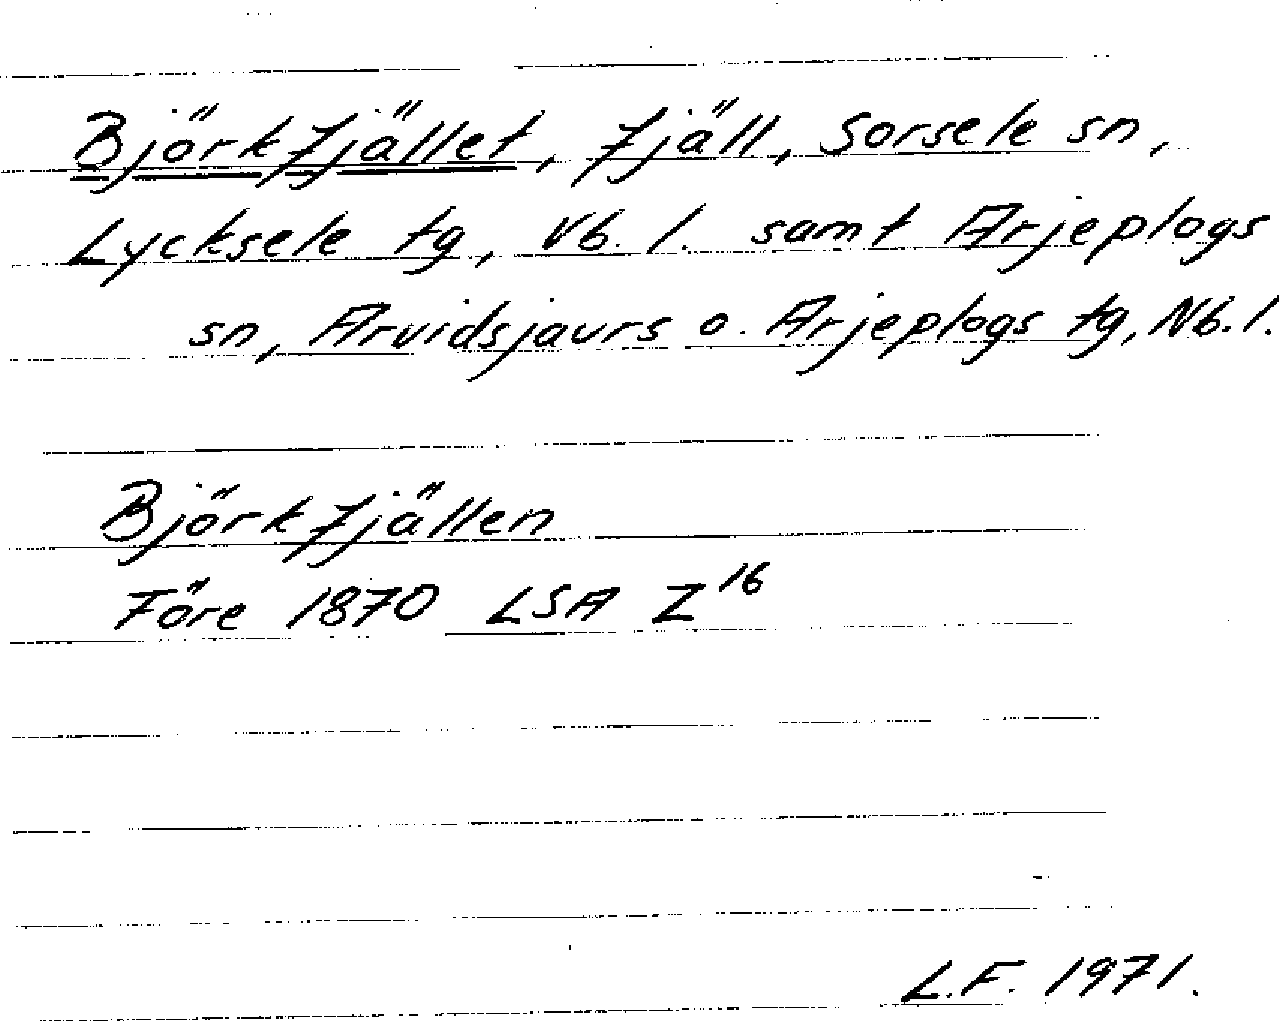 Björkfjället, fjäll, Sorsele sn,
Lycksele tg, Vb. l. samt Arjeplogs
sn, Arvidsjaurs o. Arjeplogs tg, Nb. l.
Björkfjällen
Före 1870 LSA Z¹⁶
L.F. 1971.